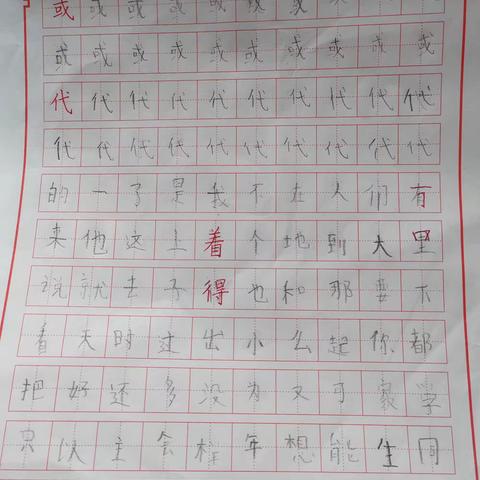 或或或或或或或或或
或或或或或或或或或
代代代代代代代代代代
代代代代代代代代代代
的一了是我不在人们有
来他这上着个地到大里
说就去子得也和那要下
看天时过出小么起你都
把好还多没为又可家学
只以主会样年想能生同